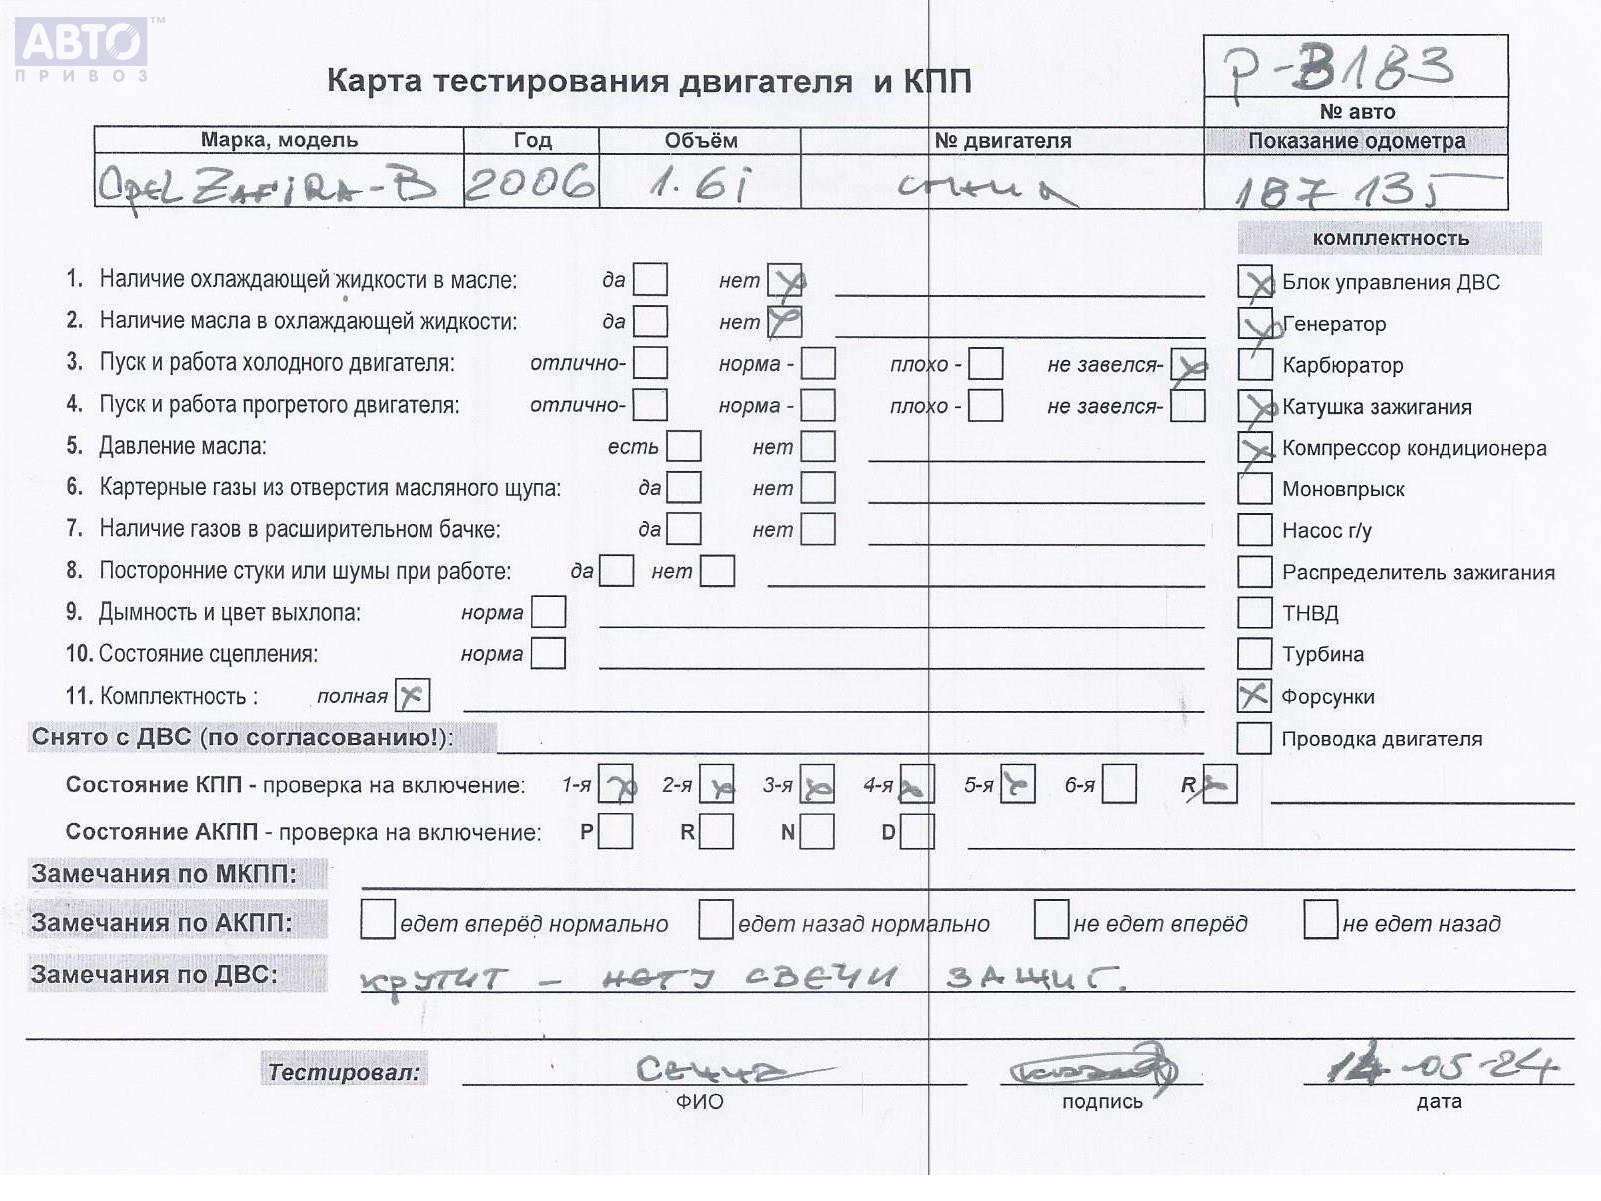 АВТО™
ПРИВОЗ
Карта тестирования двигателя и КПП
P-B183
№ авто
Марка, модель Год Объём № двигателя Показание одометра
Opel Zafira-B 2006 1.6i 187 135
комплектность
1. Наличие охлаждающей жидкости в масле: да нет
Блок управления ДВС
2. Наличие масла в охлаждающей жидкости: да нет
Генератор
3. Пуск и работа холодного двигателя: отлично- норма - плохо - не завелся-
Карбюратор
4. Пуск и работа прогретого двигателя: отлично- норма - плохо - не завелся-
Катушка зажигания
5. Давление масла: есть нет
Компрессор кондиционера
6. Картерные газы из отверстия масляного щупа: да нет
Моновпрыск
7. Наличие газов в расширительном бачке: да нет
Насос г/у
8. Посторонние стуки или шумы при работе: да нет
Распределитель зажигания
9. Дымность и цвет выхлопа: норма
ТНВД
10. Состояние сцепления: норма
Турбина
11. Комплектность : полная
Форсунки
Снято с ДВС (по согласованию!):
Проводка двигателя
Состояние КПП - проверка на включение: 1-я 2-я 3-я 4-я 5-я 6-я R
Состояние АКПП - проверка на включение: P R N D
Замечания по МКПП:
Замечания по АКПП: едет вперёд нормально едет назад нормально не едет вперёд не едет назад
Замечания по ДВС: крутит - нету свечи зажиг.
Тестировал: 14-05-24
ФИО подпись дата